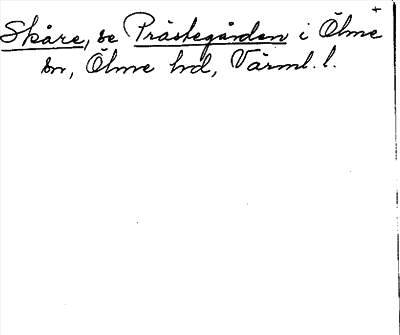 Skåre, se Prästegården i Ölme
sn, Ölme hd, Värml. l.